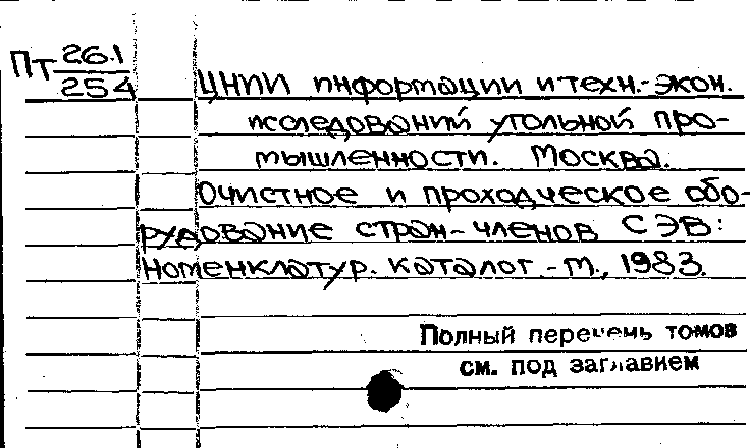 Пт 261
254
ЦНИИ информации и техн.-экон.
исследований угольной про-
мышленности. Москва.
Очистное и проходческое обо-
рудование стран-членов СЭВ:
Номенклатур. каталог. - М., 1983.
Полный перечень томов
см. под заглавием